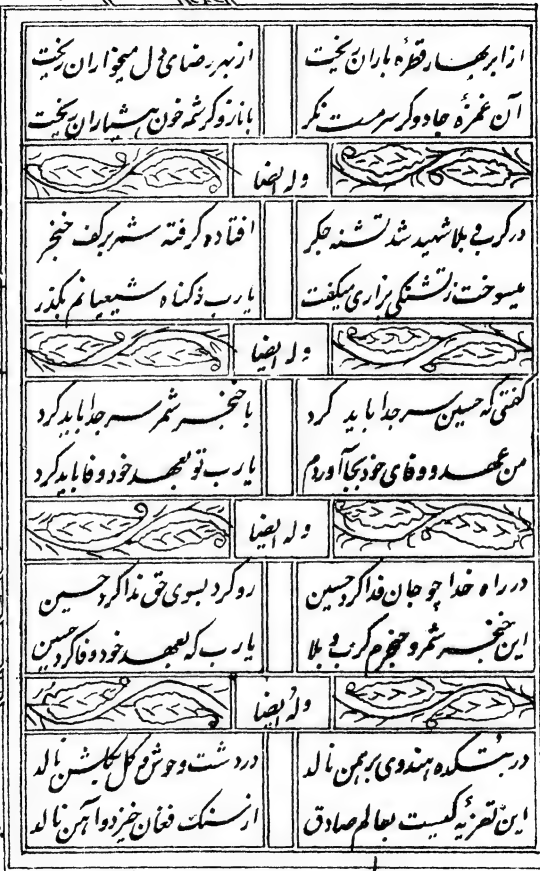 از ابر بهار قطرهٔ باران ریخت از بهر رضای دل میخواران ریخت
آن غمزهٔ جادوگر سرمست نگر با ناز و کرشمه خون هشیاران ریخت
وله ایضا
در کرب و بلا شهید شد تشنه جگر افتاده گرفته شمر بر کف خنجر
میسوخت ز تشنگی بزاری میگفت یا رب ز گناه شیعیانم بگذر
وله ایضا
گفتی که حسین سر جدا باید کرد با خنجر شمر سر جدا باید کرد
من عهد و وفای خود بجا آوردم یا رب تو بعهد خود وفا باید کرد
وله ایضا
در راه خدا چو جان فدا کرد حسین رو کرد بسوی حق ندا کرد حسین
این خنجر شمر و حنجرم کرب و بلا یا رب که بعهد خود وفا کرد حسین
وله ایضا
در بتکده هندوی برهمن نالد در دشت وحوش و گل بگلشن نالد
این تعزیه کیست بعالم صادق از سنگ فغان خیزد و آهن نالد